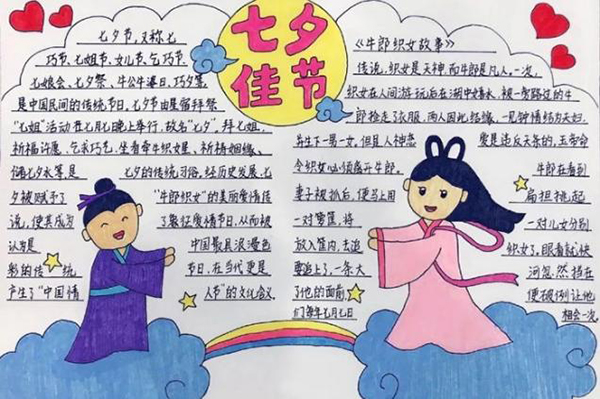 七夕佳节
七夕节,又称七
巧节、七姐节、女儿节、乞巧节、
七娘会、七夕祭、牛公牛婆日、巧夕等,
是中国民间的传统节日,七夕节由星宿拜祭
"七姐"活动在七月七晚上举行,故名"七夕",拜七姐,
祈福许愿、乞求巧艺、坐看牵牛织女星、祈祷姻缘、
储七夕水等是七夕的传统习俗,经历史发展,七
夕被赋予了"牛郎织女"的美丽爱情传
说,使其成为了象征爱情节日,从而被
认为是中国最具浪漫色
彩的传统节日,在当代更是
产生了"中国情人节"的文化含义
《牛郎织女故事》
传说,织女是天神,而牛郎是凡人,一次,
织女在人间游玩后在湖中嬉水,被一旁路过的牛
郎抢走衣服,两人因此结缘,一见钟情结为夫妇,
并生下一男一女,但且人神恋爱是违反天条的,玉帝命
令织女必须离开牛郎,牛郎在看到
妻子被抓后,便马上用扁担挑起
一对箩筐,将一对儿女分别
放入筐内,去追织女了,眼看就快
要追上了,一条大河忽然挡在
了他的面前,便破例让他
们每年七月七日相会一次